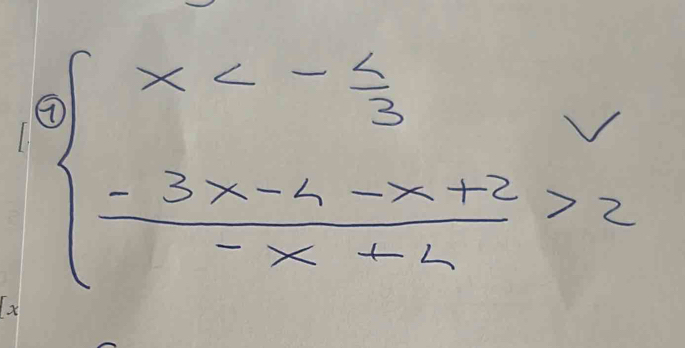 ① { x < - 4/3
∨
(- 3x - 4 - x + 2)/(- x + 4) > 2
[
[x